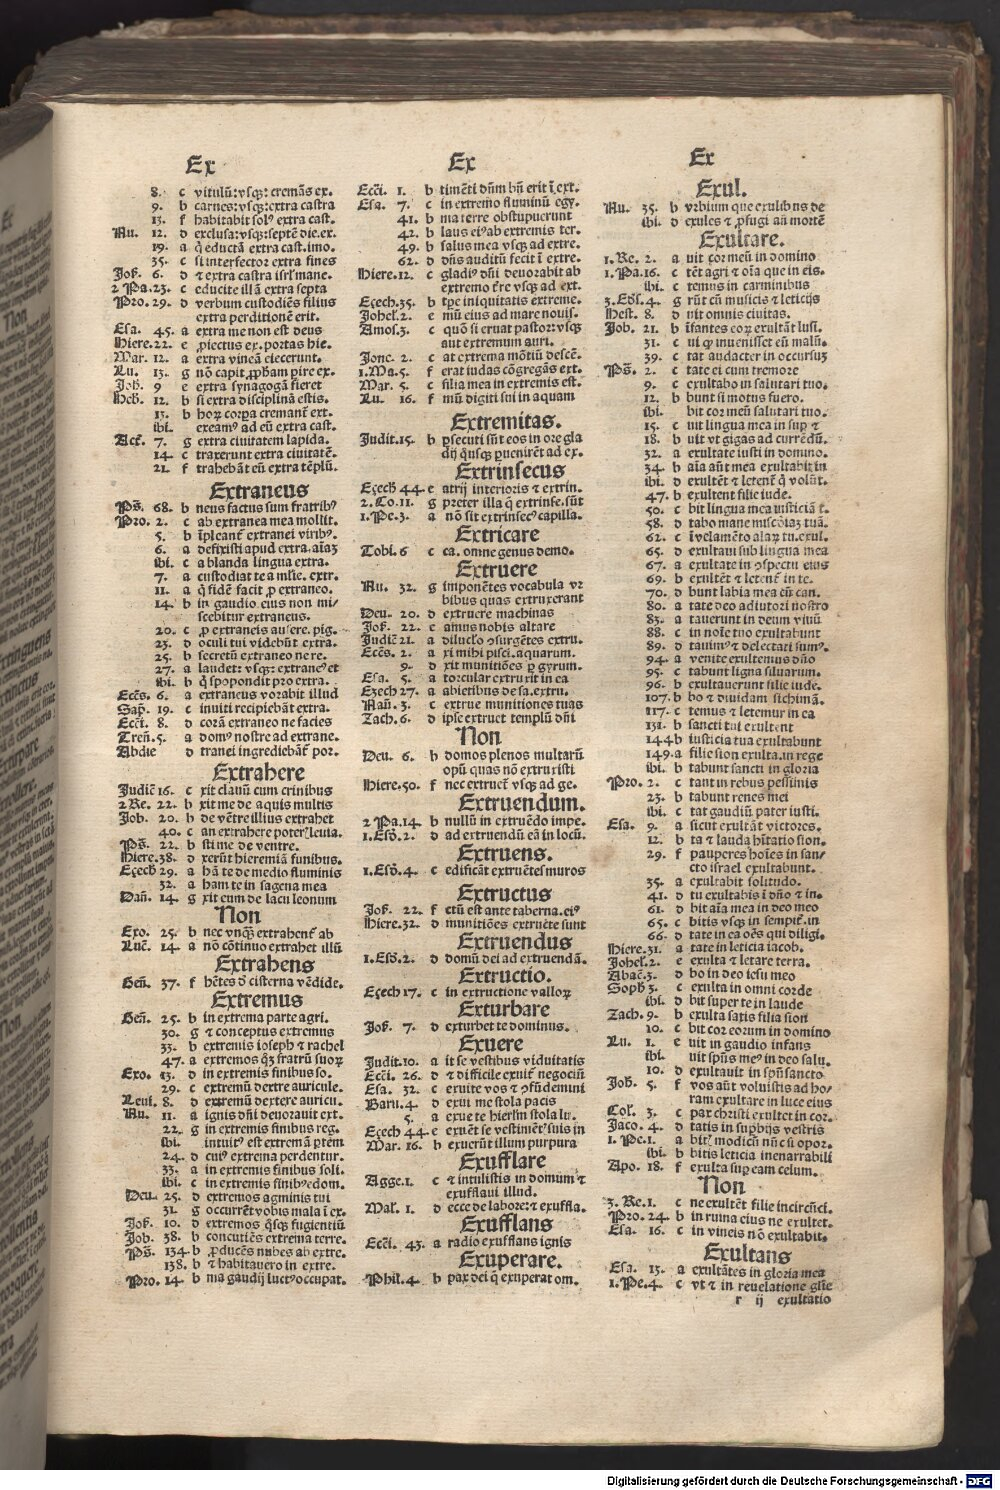 Ex
8. c vitulū: vsqꝫ: cremās ex.
9. b carnes: vsqꝫ: extra castra
13. f habitabit solꝰ extra cast.
Nu. 12. d exclusa: vsqꝫ: septē die. ex.
19. a q̄ eductā extra cast. imo.
35. c si interfector extra fines
Jos. 6. d ⁊ extra castra isrl' mane.
2 Pa. 23. c educite illā extra septa
Pro. 29. d verbum custodiēs filius
extra perditionē erit.
Esa. 45. a extra me non est deus
Hiere. 22. e ꝓiectus ex. portas hie.
Mar. 12. a extra vineā eiecerunt.
Lu. 13. g nō capit ꝓpham pire ex.
Joh. 9 e extra synagogā fieret
Heb. 12. b si extra disciplinā estis.
13. b hoꝝ corꝑa cremant' ext.
ibi. exeamꝰ ad eū extra cast.
Act. 7. g extra ciuitatem lapida.
14. c traxerunt extra ciuitatē.
21. f trahebāt eū extra tēplū.
Extraneus
Ps. 68. b neus factus sum fratribꝰ
Pro. 2. c ab extranea mea mollit.
5. b īpleant' extranei viribꝰ.
6. a defixisti apud extra. aīaꝫ
ibi. c a blanda lingua extra.
7. a custodiat te a mlie. extr.
11. a q̄ fidē facit ꝓ extraneo.
14. b in gaudio eius non mi/
scebitur extraneus.
20. c ꝓ extraneis aufere. pig.
23. d oculi tui videbūt extra.
25. b secretū extraneo ne re.
27. a laudet: vsqꝫ: extraneꝰ et
ibi. b q̄ spopondit pro extra.
Eccs. 6. a extraneus vorabit illud
Sap. 19. c inuiti recipiebāt extra.
Ecci. 8. d corā extraneo ne facies
Tren. 5. a domꝰ nostre ad extrane.
Abdie d tranei ingrediebāt' por.
Extrahere
Judic 16. c xit clauū cum crinibus
2 Re. 22. b xit me de aquis multis
Job. 20. b de vētre illius extrahet
40. c an extrahere poter' leuia.
Ps. 22. b sti me de ventre.
Hiere. 38. d xerūt hieremiā funibus.
Eçech 29. a hā te de medio fluminis
32. a ham te in sagena mea
Dan. 14. g xit eum de lacu leonum
Non
Exo. 25. b nec vnq̄ꝫ extrahent' ab
Luc. 14. a nō cōtinuo extrahet illū
Extrahens
Gen. 37. f hētes d' cisterna vēdide.
Extremus
Gen. 25. b in extrema parte agri.
30. g ⁊ conceptus extremus
33. b extremis ioseph ⁊ rachel
47. a extremos q̄ꝫ fratrū suoꝝ
Exo. 13. d in extremis finibus so.
29. c extremū dextre auricule.
Leui. 8. d extremū dextere auricu.
Nu. 11. a ignis dn̄i deuorauit ext.
22. g in extremis finibus reg.
ibi. intuitꝰ est extremā ꝑtem
24. d cuiꝰ extrema perdentur.
33. a in extremis finibus soli.
ibi. c in extremis finibꝰ edom.
Deu. 25. d extremos agminis tui
31. g occurrēt vobis mala ī ex.
Jos. 10. d extremos q̄sqꝫ fugientiū
Job. 38. b concutiēs extrema terre.
Ps. 134. b ꝓducēs nubes ab extre.
138. b ⁊ habitauero in extre.
Pro. 14. b ma gaudij luctꝰ occupat.
Ex
Ecci. 1. b timēti dn̄m bn̄ erit ī ext.
Esa. 7. c in extremo fluminū egy.
41. b ma terre obstupuerunt
42. b laus eiꝰ ab extremis ter.
49. b salus mea vsqꝫ ad extre.
62. d dn̄s auditū fecit ī extre.
Hiere. 12. c gladiꝰ dn̄i deuorabit ab
extremo t're vsqꝫ ad ext.
Eçech. 35. b tp̄e iniquitatis extreme.
Johel. 2. e mū eius ad mare nouis.
Amos. 3. c quō si eruat pastor: vsqꝫ
aut extremum auri.
Jone. 2. c at extrema mōtiū descē.
1. Ma. 5. f erat iudas cōgregās ext.
Mar. 5. c filia mea in extremis est.
Lu. 16. f mū digiti sui in aquam
Extremitas.
Judit. 15. b ꝑsecuti sūt eos in ore gla
dij q̄usqꝫ ꝑuenirēt ad ex.
Extrinsecus
Eçech 44. e atrij interioris ⁊ extrin.
2. Co. 11. g preter illa q̄ extrinse. sūt
1. Pe. 3. a nō sit extrinsecꝰ capilla.
Extricare
Tobi. 6 c ca. omne genus demo.
Extruere
Nu. 32. g imponētes vocabula vr
bibus quas extruxerant
Deu. 20. d extruere machinas
Jos. 22. c amus nobis altare
Judic 21. a diluclo ɔsurgētes extru.
Eccs. 2. a xi mihi pisci. aquarum.
9. d xit munitiōes ꝑ gyrum.
Esa. 5. a torcular extruxit in ea
Ezech 27. a abietibus de sa. extru.
Nau. 3. c extrue munitiones tuas
Zach. 6. d ipse extruet templū dn̄i
Non
Deu. 6. b domos plenos multarū
opū quas nō extruxisti
Hiere. 50. f nec extruet' vsqꝫ ad ge.
Extruendum.
2 Pa. 14. b nullū in extruēdo impe.
1. Esd. 2. d ad extruendū eā in locū.
Extruens.
1. Esd. 4. c edificāt extruētes muros
Extructus
Jos. 22. f ctū est ante taberna. eiꝰ
Hiere. 32. d munitiōes extructe sunt
Extruendus
1. Esd. 2. d domū dei ad extruendā.
Extructio.
Eçech 17. c in extructione valloꝝ
Exturbare
Jos. 7. d exturbet te dominus.
Exuere
Judit. 10. a it se vestibus viduitatis
Ecci. 26. d ⁊ difficile exuit' negociū
Esa. 32. c exuite vos ⁊ ɔfūdemini
Baru. 4. d exui me stola pacis
5. a exue te hierlm̄ stola lu.
Eçech 44. e exuēt se vestimētꝰ suis in
Mar. 16. b exuerūt illum purpura
Exufflare
Agge. 1. c ⁊ intulistis in domum ⁊
exufflaui illud.
Mal. 1. d ecce de labore: ⁊ exuffla.
Exufflans
Ecci. 43. a radio exufflans ignis
Exuperare.
Phil. 4. b pax dei q̄ exuperat om.
Ex
Exul.
Nu. 35. b vrbium que exulibus de
ibi. d exules ⁊ ꝓfugi an̄ mortē
Exultare.
1. Re. 2. a uit cor meū in domino
1. Pa. 16. c tēt agri ⁊ oīa que in eis.
ibi. c temus in carminibus
3. Esd. 4. g rūt cū musicis ⁊ leticijs
Hest. 8. d uit omnis ciuitas.
Job. 21. b īfantes eoꝝ exultāt lusi.
31. c ui ꝙ inuenisset eū malū.
39. c tat audacter in occursuꝫ
Ps. 2. c tate ei cum tremore
9. c exultabo in salutari tuo.
12. b bunt si motus fuero.
ibi. bit cor meū salutari tuo.
15. c uit lingua mea insup ⁊
18. b uit vt gigas ad currēdū.
32. a exultate iusti in domino.
34. b aīa aūt mea exultabit in
ibi. d exultēt ⁊ letent' q̄ volūt.
47. b exultent filie iude.
50. c bit lingua mea iusticiā t.
58. d tabo mane miscḏiaꝫ tuā.
62. c ī velamēto alaꝝ tu. exul.
65. d exultaui sub lingua mea
67. a exultate in ɔspectu eius
69. b exultēt ⁊ letent' in te.
70. d bunt labia mea cū can.
80. a tate deo adiutori nostro
83. a tauerunt in deum viuū
88. c in noīe tuo exultabunt
89. d tauimꝰ ⁊ delectati sumꝰ.
94. a venite exultemus dn̄o
95. c tabunt ligna siluarum.
96. b exultauerunt filie iude.
107. b bo ⁊ diuidam sichimā.
117. c temus ⁊ letemur in ea
131. b sancti tui exultent
144 b iusticia tua exultabunt
149. a filie sion exulta. in rege
ibi. b tabunt sancti in gloria
Pro. 2. c tant in rebus pessimis
23. b tabunt renes mei
ibi. c tat gaudiū pater iusti.
Esa. 9. a sicut exultāt victores.
12. b ta ⁊ lauda hītatio sion.
29. f pauperes hoīes in san/
cto israel exultabunt.
35. a exultabit solitudo.
41. d tu exultabis ī dn̄o ⁊ in.
61. d bit aīa mea in deo meo
65. c bitis vsqꝫ in sempit'. in
66. d tate in ea oēs qui diligi.
Hiere. 31. a tate in leticia iacob.
Johel. 2. e exulta ⁊ letare terra.
Abac. 3. d bo in deo iesu meo
Soph 3. c exulta in omni corde
ibi. d bit super te in laude
Zach. 9. b exulta satis filia sion
10. c bit cor eorum in domino
Lu. 1. e uit in gaudio infans
ibi. uit spūs meꝰ in deo salu.
10. d exultauit in spū sancto
Joh. 5. f vos aūt voluistis ad ho/
ram exultare in luce eius
Col. 3. c pax christi exultet in cor.
Jaco. 4. d tatis in supbijs vestris
1. Pe. 1. a bit' modicū nūc si opor.
ibi. b bitis leticia inenarrabili
Apo. 18. f exulta sup eam celum.
Non
3. Re. 1. c ne exultēt filie incircūci.
Pro. 24. b in ruina eius ne exultet.
Esa. 16. c in vineis nō exultabit.
Exultans
Esa. 13. a exultātes in gloria mea
1. Pe. 4. c vt ⁊ in reuelatione glie
r ij exultatio
Digitalisierung gefördert durch die Deutsche Forschungsgemeinschaft - DFG